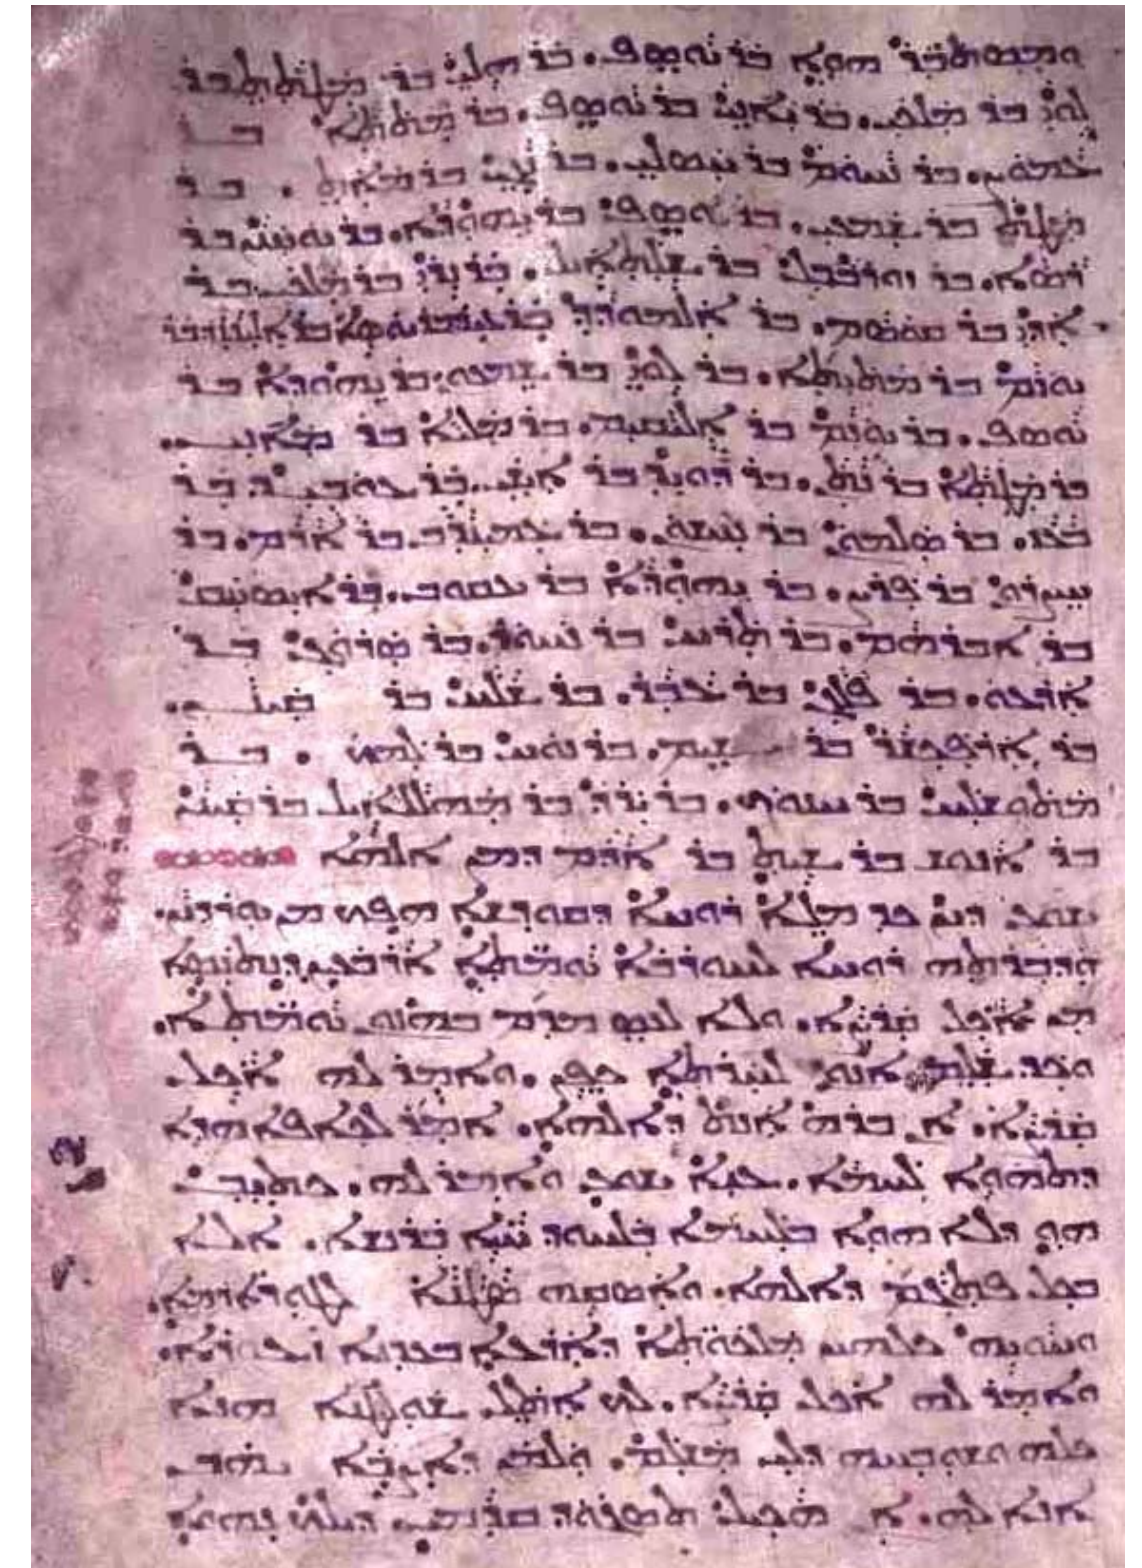 ܘܡܣܬܒܪ ܗܘܐ ܒܪ ܝܘܣܦ. ܒܪ ܗܠܝ ܒܪ ܡܛܬܬ ܒܪ
ܠܘܝ ܒܪ ܡܠܟܝ. ܒܪ ܝܐܢܝ ܒܪ ܝܘܣܦ. ܒܪ ܡܬܬܐ ܒܪ
ܒܪ ܢܚܘܡ ܒܪ ܚܣܠܝ. ܒܪ ܢܓܝ ܒܪ ܡܐܬ. ܒܪ
ܡܛܬ ܒܪ ܫܡܥܝ. ܒܪ ܝܘܣܦ ܒܪ ܝܗܘܕܐ. ܒܪ ܝܘܚܢܢ ܒܪ
ܪܣܐ. ܒܪ ܙܘܪܒܒܠ ܒܪ ܫܠܬܐܝܠ. ܒܪ ܢܪܝ ܒܪ ܡܠܟܝ ܒܪ
ܐܕܝ ܒܪ ܩܘܣܡ. ܒܪ ܐܠܡܘܕܕ ܒܪ ܥܝܪ ܒܪ ܝܘܣܐ ܒܪ ܐܠܝܥܙܪ ܒܪ
ܝܘܪܡ ܒܪ ܡܬܝܬܐ. ܒܪ ܠܘܝ ܒܪ ܫܡܥܘܢ ܒܪ ܝܗܘܕܐ ܒܪ
ܝܘܣܦ. ܒܪ ܝܘܢܡ ܒܪ ܐܠܝܩܝܡ. ܒܪ ܡܠܝܐ ܒܪ ܡܐܢܝ.
ܒܪ ܡܛܬܐ ܒܪ ܢܬܢ. ܒܪ ܕܘܝܕ ܒܪ ܐܝܫܝ. ܒܪ ܥܘܒܝܕ ܒܪ
ܒܥܙ. ܒܪ ܣܠܡܘܢ ܒܪ ܢܚܫܘܢ. ܒܪ ܥܡܝܢܕܒ ܒܪ ܐܪܡ. ܒܪ
ܚܨܪܘܢ ܒܪ ܦܪܨ. ܒܪ ܝܗܘܕܐ ܒܪ ܝܥܩܘܒ. ܒܪ ܐܝܣܚܩ
ܒܪ ܐܒܪܗܡ. ܒܪ ܬܪܚ ܒܪ ܢܚܘܪ. ܒܪ ܣܪܘܓ ܒܪ
ܐܪܥܘ. ܒܪ ܦܠܓ ܒܪ ܥܒܪ. ܒܪ ܫܠܚ ܒܪ ܩܝܢܢ.
ܒܪ ܐܪܦܟܫܪ ܒܪ ܫܝܡ. ܒܪ ܢܘܚ ܒܪ ܠܡܟ. ܒܪ
ܡܬܘܫܠܚ ܒܪ ܚܢܘܟ. ܒܪ ܝܪܕ ܒܪ ܡܗܠܠܐܝܠ ܒܪ ܩܝܢܢ
ܒܪ ܐܢܘܫ ܒܪ ܫܝܬ ܒܪ ܐܕܡ ܕܡܢ ܐܠܗܐ
ܝܫܘܥ ܕܝܢ ܟܕ ܡܠܐ ܪܘܚܐ ܕܩܘܕܫܐ ܗܦܟ ܡܢ ܝܘܪܕܢܢ.
ܘܕܒܪܬܗ ܪܘܚܐ ܠܚܘܪܒܐ ܝܘܡܬܐ ܐܪܒܥܝܢ ܕܢܬܢܣܐ
ܡܢ ܐܟܠܩܪܨܐ. ܘܠܐ ܠܥܣ ܡܕܡ ܒܗܢܘܢ ܝܘܡܬܐ.
ܘܟܕ ܫܠܡ ܐܢܘܢ ܠܚܪܬܐ ܟܦܢ. ܘܐܡܪ ܠܗ ܐܟܠ
ܩܪܨܐ. ܐܢ ܒܪܗ ܐܢܬ ܕܐܠܗܐ. ܐܡܪ ܠܟܐܦܐ ܗܕܐ
ܕܬܗܘܐ ܠܚܡܐ. ܥܢܐ ܝܫܘܥ ܘܐܡܪ ܠܗ. ܟܬܝܒ
ܗܘ ܕܠܐ ܗܘܐ ܒܠܚܡܐ ܒܠܚܘܕ ܚܝܐ ܒܪܢܫܐ. ܐܠܐ
ܒܟܠ ܦܬܓܡ ܕܐܠܗܐ. ܘܐܣܩܗ ܣܛܢܐ ܠܛܘܪܐ ܪܡܐ.
ܘܚܘܝܗ ܟܠܗܝܢ ܡܠܟܘܬܐ ܕܐܪܥܐ ܒܥܕܢܐ ܙܥܘܪܐ.
ܘܐܡܪ ܠܗ ܐܟܠ ܩܪܨܐ. ܠܟ ܐܬܠ ܫܘܠܛܢܐ ܗܢܐ
ܟܠܗ ܘܫܘܒܚܗ ܕܠܝ ܡܫܠܡ. ܘܠܡܢ ܕܐܨܒܐ ܝܗܒ
ܐܢܐ ܠܗ. ܐܢ ܗܟܝܠ ܬܣܓܘܕ ܩܕܡܝ. ܕܝܠܟ ܢܗܘܐ